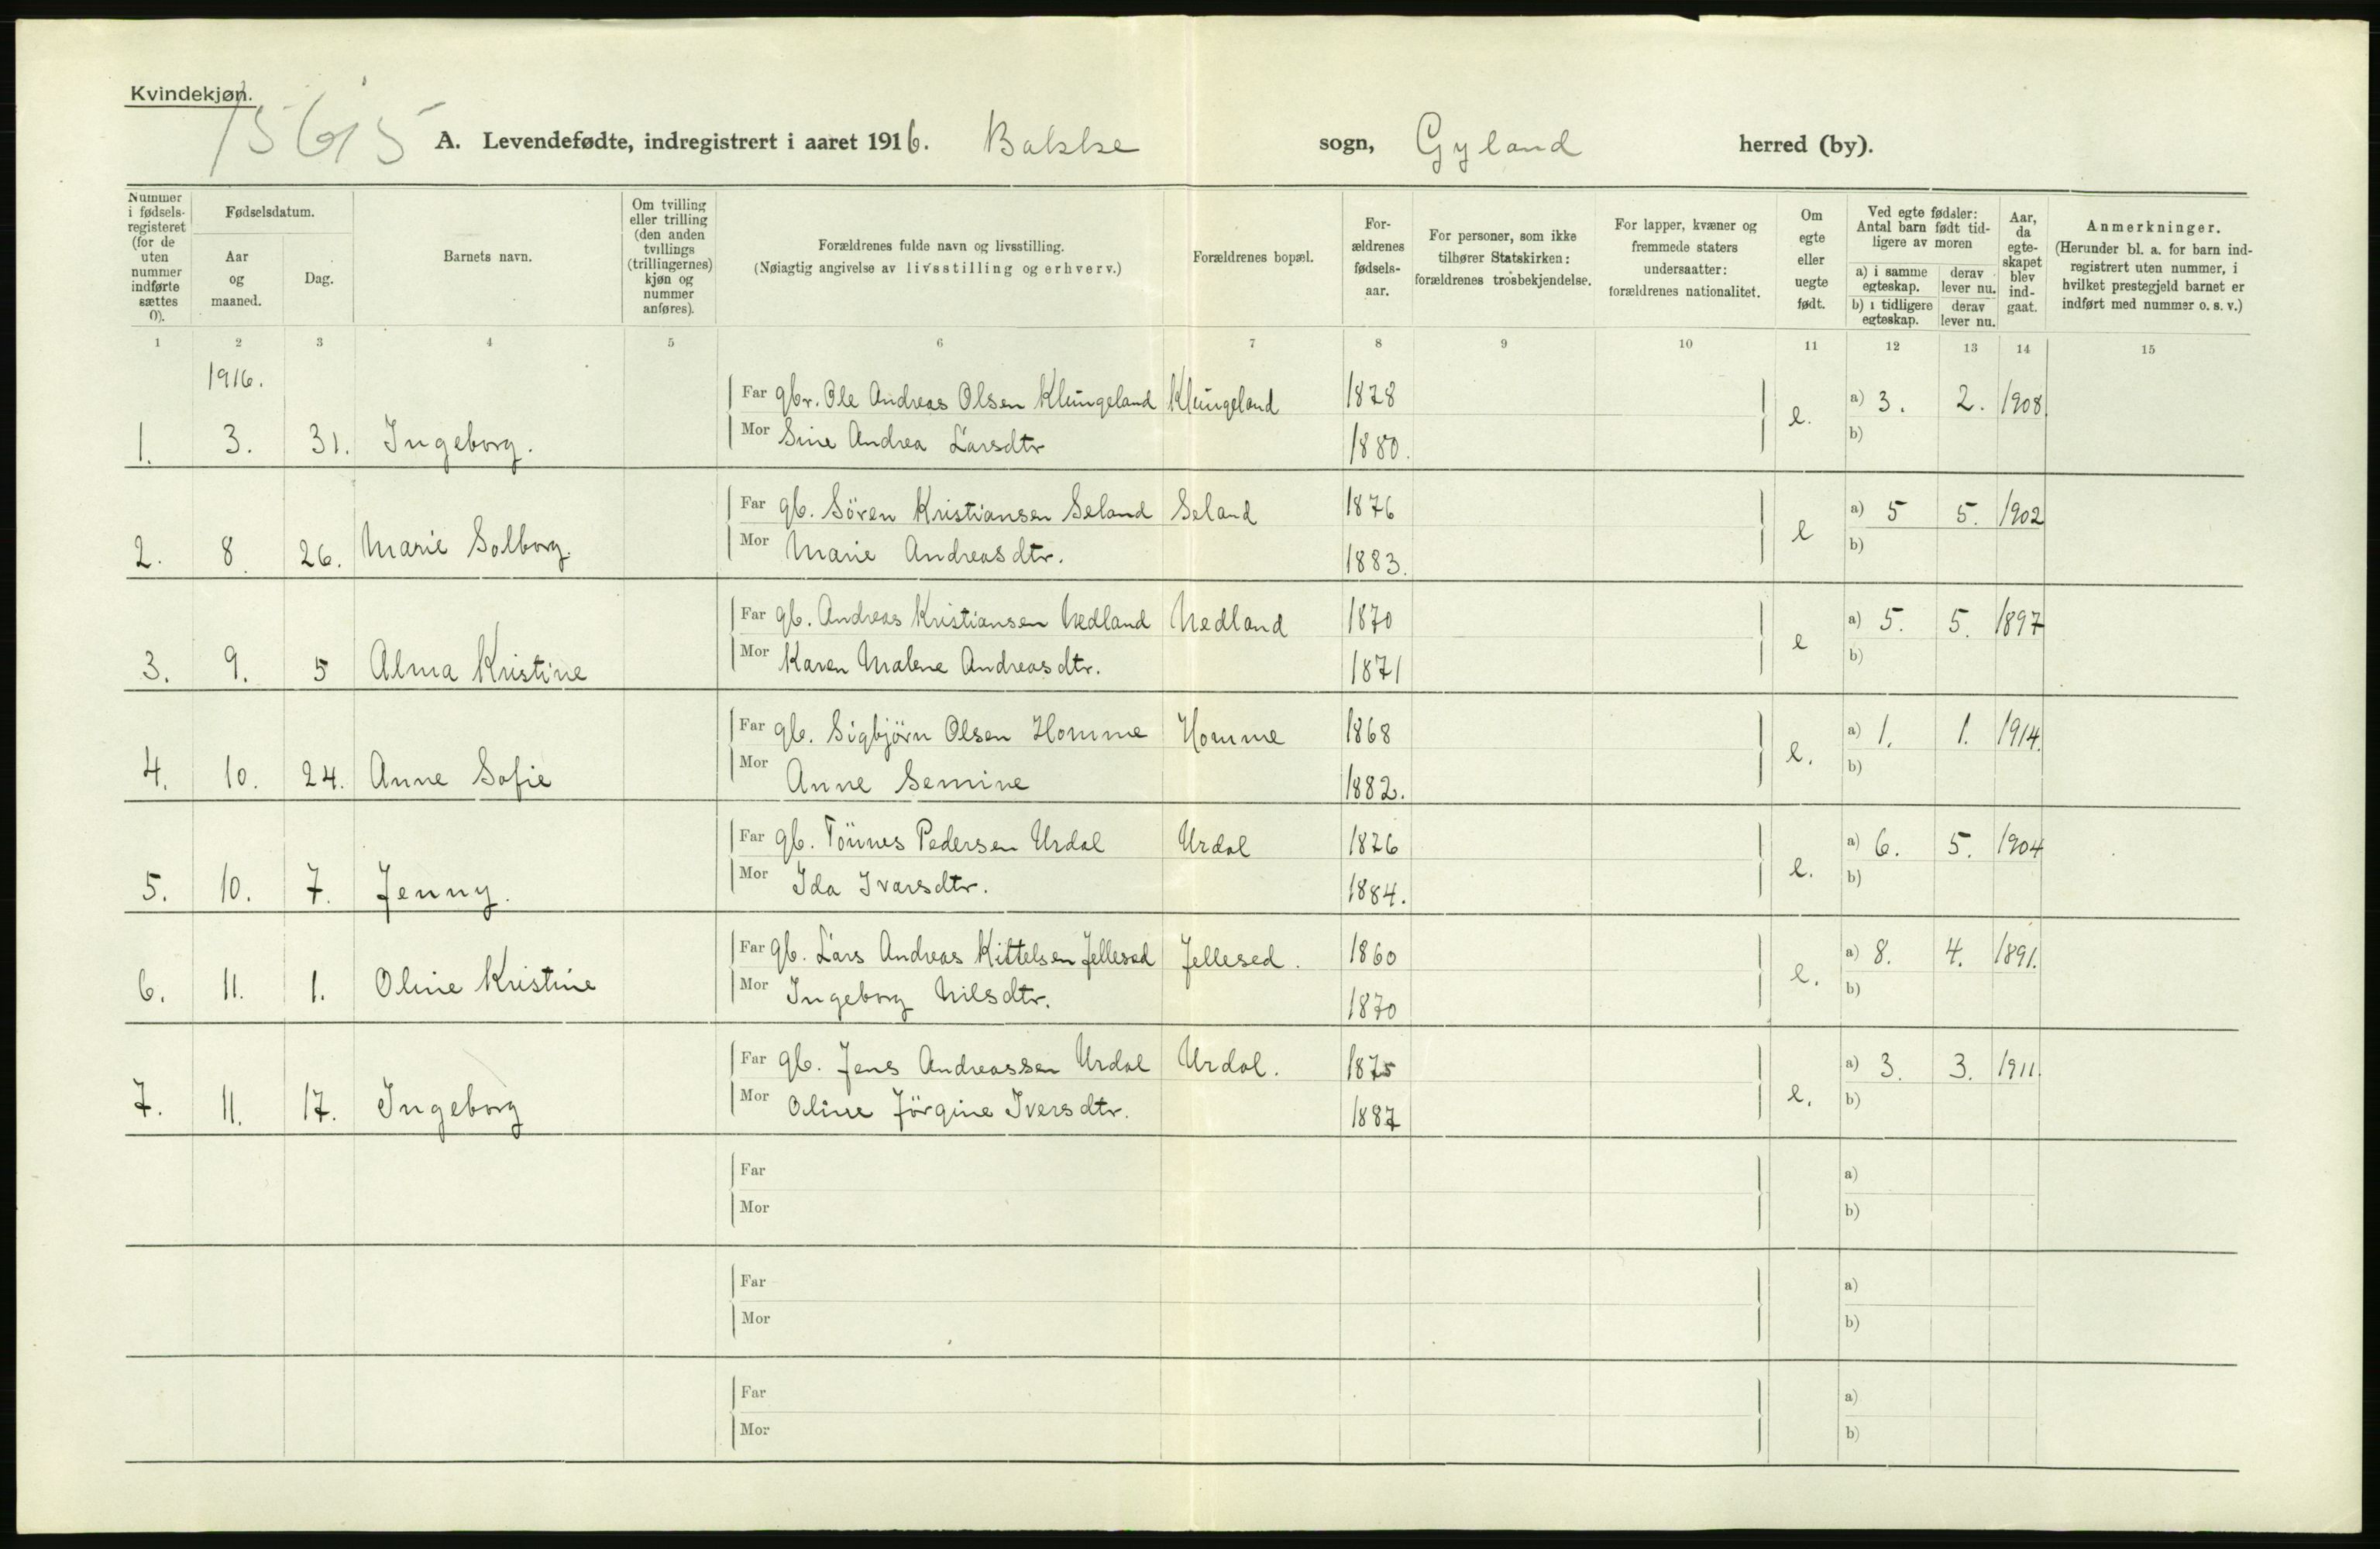 Kvindekjøn.
15615
A. Levendefødte, indregistrert i aaret 1916. Bakke sogn, Gyland herred (by).
Nummer i fødsels-registeret (for de uten nummer indførte sættes 0).
Fødselsdatum.
Aar og maaned.
Dag.
Barnets navn.
Om tvilling eller trilling (den anden tvillings (trillingernes) kjøn og nummer anføres).
Forældrenes fulde navn og livsstilling.
(Nøiagtig angivelse av livsstilling og erhverv.)
Forældrenes bopæl.
For-ældrenes fødsels-aar.
For personer, som ikke tilhører Statskirken: forældrenes trosbekjendelse.
For lapper, kvæner og fremmede staters undersaatter: forældrenes nationalitet.
Om egte eller uegte født.
Ved egte fødsler: Antal barn født tid-ligere av moren
a) i samme egteskap.
derav lever nu.
b) i tidligere egteskap.
derav lever nu.
Aar, da egte-skapet blev ind-gaat.
Anmerkninger.
(Herunder bl. a. for barn ind-registrert uten nummer, i hvilket prestegjeld barnet er indført med nummer o. s. v.)
1 2 3 4 5 6 7 8 9 10 11 12 13 14 15
1916.
Far gbr. Ole Andreas Olsen Klungeland Klungeland 1878 a) 3. 2. 1908
1. 3. 31. Ingeborg. Mor Sine Andrea Larsdtr 1880. e. b)
Far gb. Sören Kristiansen Seland Seland 1876 a) 5 5. 1902
2. 8 26. Marie Solborg. Mor Marie Andreasdtr. 1883. e b)
Far gb. Andreas Kristiansen Nedland Nedland 1870 a) 5. 5. 1897
3. 9. 5 Alma Kristine Mor Karen Malene Andreasdtr. 1871 e b)
Far gb. Sigbjörn Olsen Homme Homme 1868 a) 1. 1. 1914.
4. 10. 24. Anne Sofie Mor Anne Semine 1882. e. b)
Far gb. Tönnes Pedersen Urdal Urdal 1876 a) 6. 5. 1904
5. 10. 7. Jenny. Mor Ida Ivarsdtr. 1884. e. b)
Far gb. Lars Andreas Kittelsen Jellesed Jellesed. 1860 a) 8. 4. 1891.
6. 11. 1. Oline Kristine Mor Ingeborg Nilsdtr. 1870 e. b)
Far gb. Jens Andreassen Urdal Urdal. 1875 a) 3. 3. 1911.
7. 11. 17. Ingeborg Mor Oline Jörgine Iversdtr. 1887 e. b)
Far a)
Mor b)
Far a)
Mor b)
Far a)
Mor b)